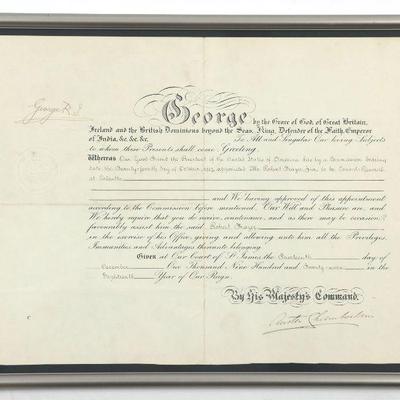 George R. I.
George by the Grace of God, of Great Britain,
Ireland and the British Dominions beyond the Seas, King, Defender of the Faith, Emperor
of India, &c. &c. &c. To All and Singular Our loving Subjects
to whom these Presents shall come, Greeting
Whereas Our Good Friend the President of the United States of America has by a Commission bearing
date the Twenty-fourth day of October last, appointed Mr Robert Frazer, Jnr., to be Consul-General
at Calcutta
and We having approved of this appointment
according to the Commission before mentioned, Our Will and Pleasure are, and
We hereby require that you do receive, countenance, and as there may be occasion,
favourably assist him the said Robert Frazer
in the exercise of his Office, giving and allowing unto him all the Privileges,
Immunities and Advantages thereunto belonging
Given at Our Court of St James, the day of
December One Thousand Nine Hundred and Twenty in the
Year of Our Reign.
By His Majesty's Command.
Austen Chamberlain